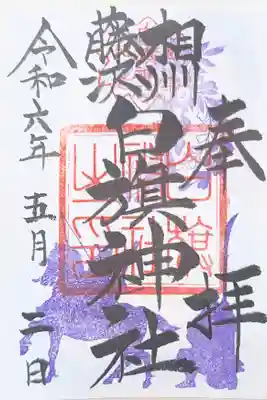 奉拝
相州
藤沢
白旗神社
令和六年 五月 三日